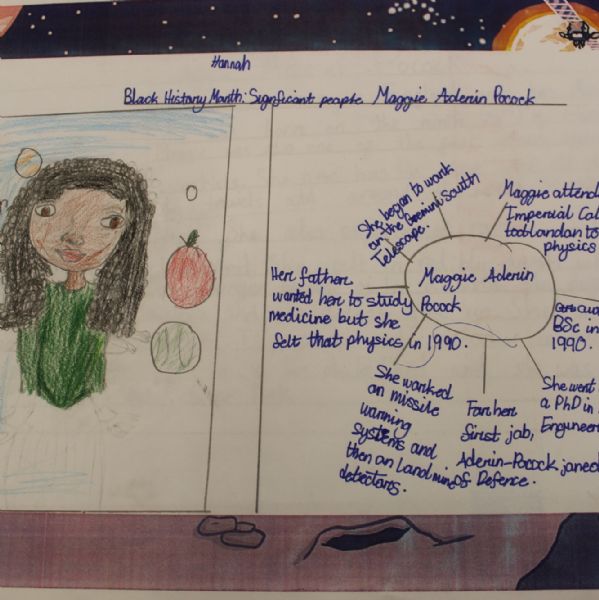 Hannah
Black History Month: Significant people Maggie Aderin Pocock
She began to work
on the Gemini South
Telescope.
Maggie attend
Imperial Col
to study
physics
Maggie Aderin
Pocock
Her father
wanted her to study
medicine but she
felt that physics in 1990.
BSc in
1990.
She worked
on missile
warning
systems and
then on land mind
detectors.
For her
first job,
Aderin-Pocock joned
of Defence.
She went
a PhD in
Engineer